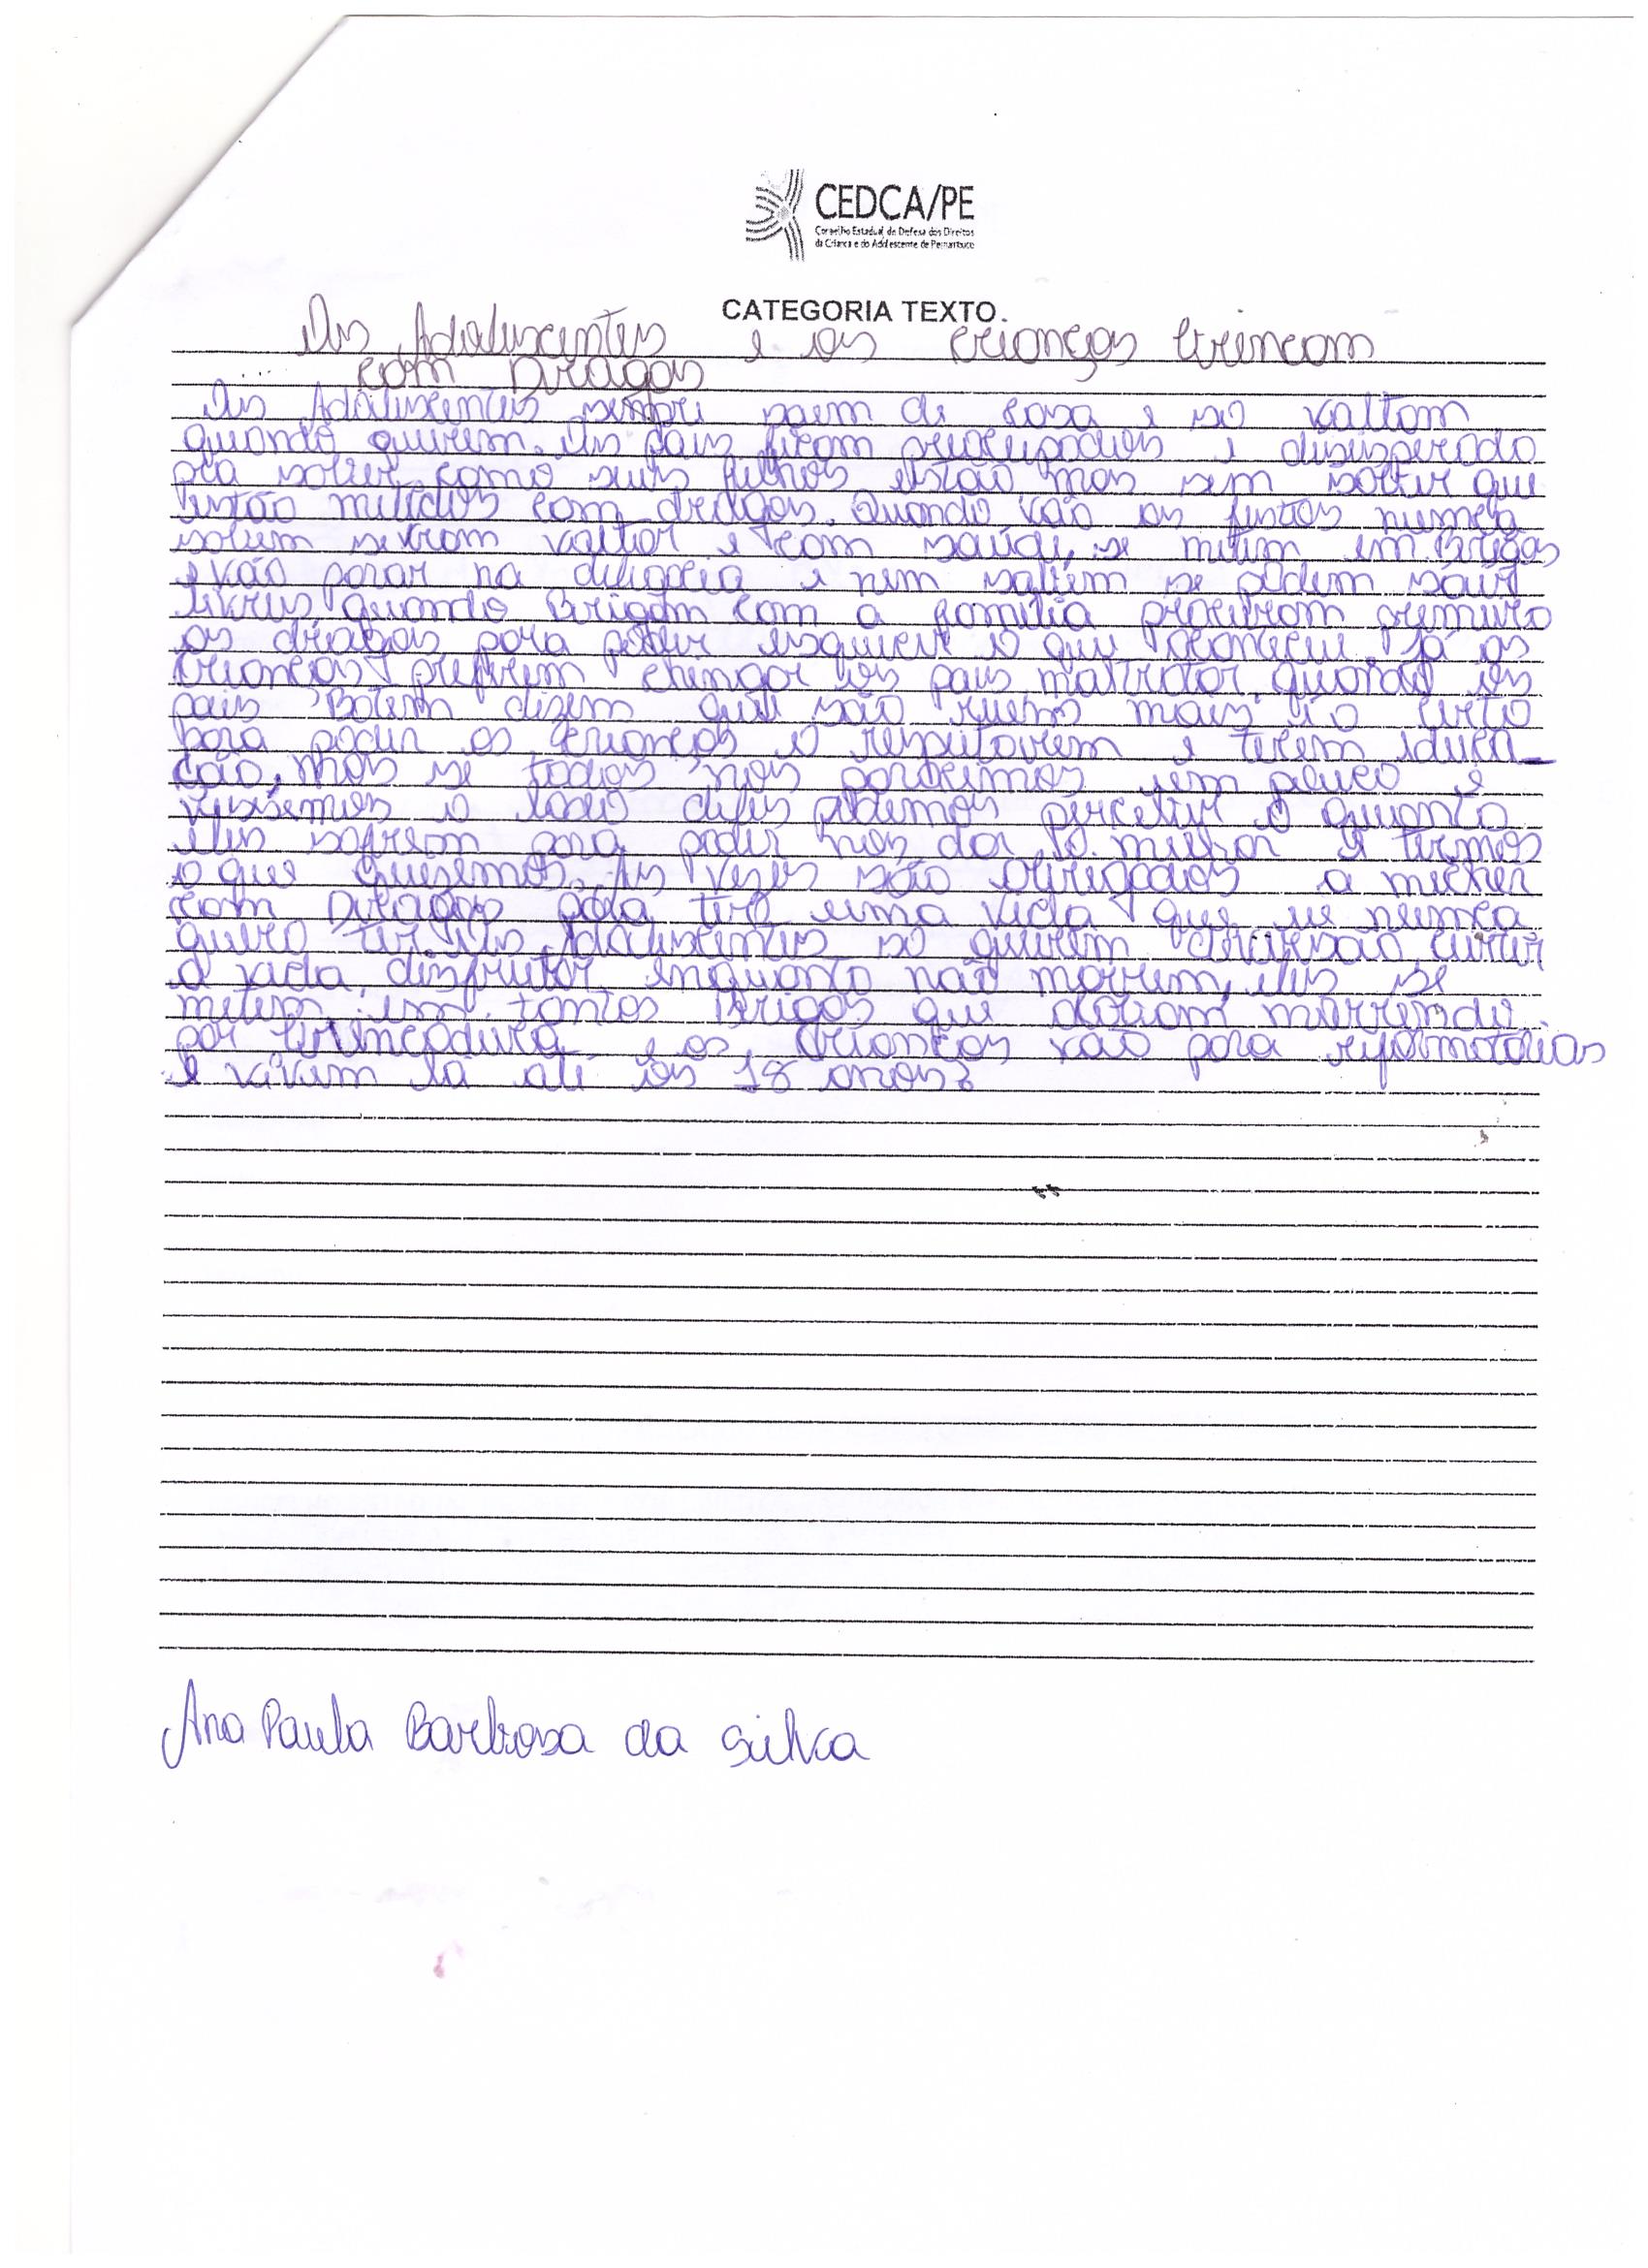 CEDCA/PE
Conselho Estadual de Defesa dos Direitos
da Criança e do Adolescente de Pernambuco
CATEGORIA TEXTO.
Os Adolescentes e as crianças brincam
com Drogas
Os Adolescentes sempre saem de casa e só voltam
quando querem. Os pais ficam preocupados e desesperado
pra saber como seus filhos estão mas sem saber que
estão metidos com drogas. Quando vão as festas nunca
sabem se vram voltar e com saúde, se metem em Brigas
e vão parar na delegacia e nem sabem se podem sair
livres quando Brigam com a familia procuram primeiro
as drogas para poder esquecer o que aconteceu. Já as
crianças preferem chingar os pais, maltratar, quando os
pais Batem dizem que são ruens mais é o certo
para poder as crianças o respeitarem e terem educa_
cão, mas se todos nós pararemos um pouco e
vissemos o lado deles podemos perceber o quanto
eles sofrem para poder nos dar o melhor e termos
o que queremos. As vezes são obrigados a mecher
com Drogas para ter uma vida que eu nunca
quero ter. Os Adolescentes só querem diversão, curtir
a vida, disfrutar enquanto não morrem, eles se
metem em tantas Brigas que acabam morrendo
por brincadeira e as crianças vão para reformatórias
e vivem lá até os 18 anos?
Ana Paula Barbosa da Silva